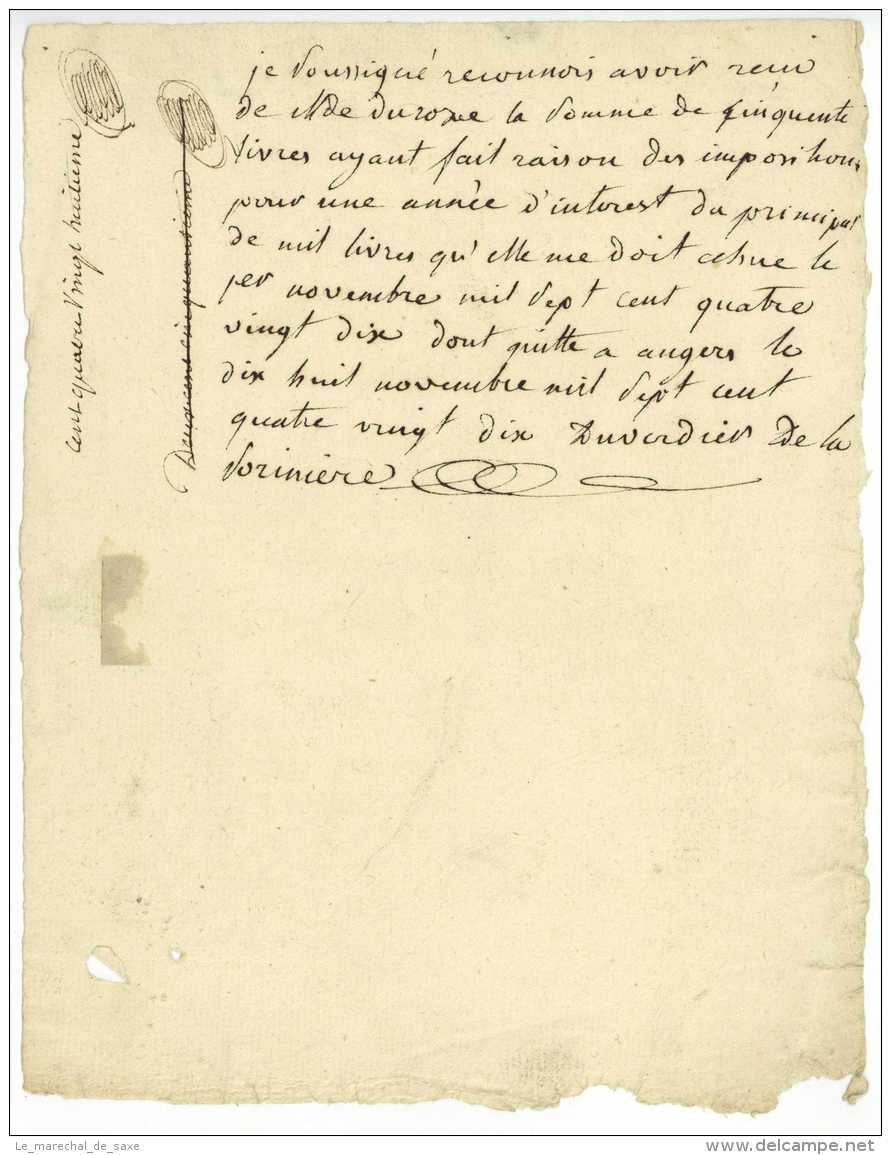 je soussigné reconnois avoir recu
de Mde du la somme de cinquente
livres ayant fait raison des impositions
pour une année d'interest du principal
de mil livres qu'elle me doit echue le
per novembre mil sept cent quatre
vingt dix dont quitte a angers le
dix huit novembre mil sept cent
quatre vingt dix Duverdier De la
Sorinière
cent quatre vingt huitieme
Deux cent cinquantieme
Le_marechal_de_saxe
www.delcampe.net